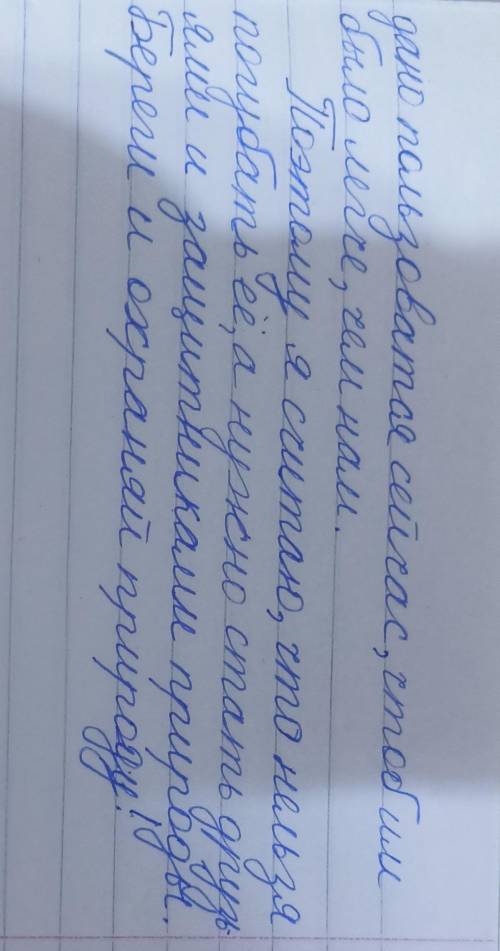 дано пользоватся сейчас, чтоб им
было легче, чем нам.
Поэтому я считаю, что нельзя
погубать её, а нужно стать друзь
ями и защитниками природы.
Береги и охраняй природу!